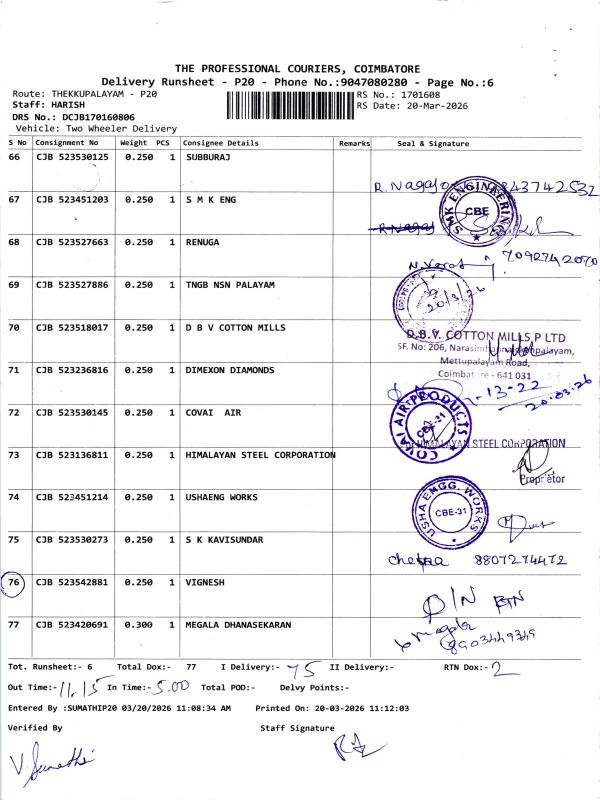 THE PROFESSIONAL COURIERS, COIMBATORE
Delivery Runsheet - P20 - Phone No.:9047080280 - Page No.:6
Route: THEKKUPALAYAM - P20
RS No.: 1701608
Staff: HARISH
RS Date: 20-Mar-2026
DRS No.: DCJB170160806
Vehicle: Two Wheeler Delivery
S No Consignment No Weight PCS Consignee Details Remarks Seal & Signature
66 CJB 523530125 0.250 1 SUBBURAJ
67 CJB 523451203 0.250 1 S M K ENG
SMK ENGINEERING CBE
68 CJB 523527663 0.250 1 RENUGA
7092742070
69 CJB 523527886 0.250 1 TNGB NSN PALAYAM
20/3/26
70 CJB 523518017 0.250 1 D B V COTTON MILLS
D.B.V. COTTON MILLS P LTD
SF. No: 206,
Mettupalayam Road,
Coimbatore - 641 031
71 CJB 523236816 0.250 1 DIMEXON DIAMONDS
20.03.26
72 CJB 523530145 0.250 1 COVAI AIR
COVAI AIR PRODUCTS CBE-31
73 CJB 523136811 0.250 1 HIMALAYAN STEEL CORPORATION
HIMALAYAN STEEL CORPORATION
Proprietor
74 CJB 523451214 0.250 1 USHAENG WORKS
USHA ENGG. WORKS CBE-31
75 CJB 523530273 0.250 1 S K KAVISUNDAR
8807274472
76 CJB 523542881 0.250 1 VIGNESH
D/N
77 CJB 523420691 0.300 1 MEGALA DHANASEKARAN
Megala
Tot. Runsheet:- 6 Total Dox:- 77 I Delivery:- 75 II Delivery:- RTN Dox:- 2
Out Time:- 11.15 In Time:- 5.00 Total POD:- Delvy Points:-
Entered By :SUMATHIP20 03/20/2026 11:08:34 AM Printed On: 20-03-2026 11:12:03
Verified By Staff Signature
V. Sumathi